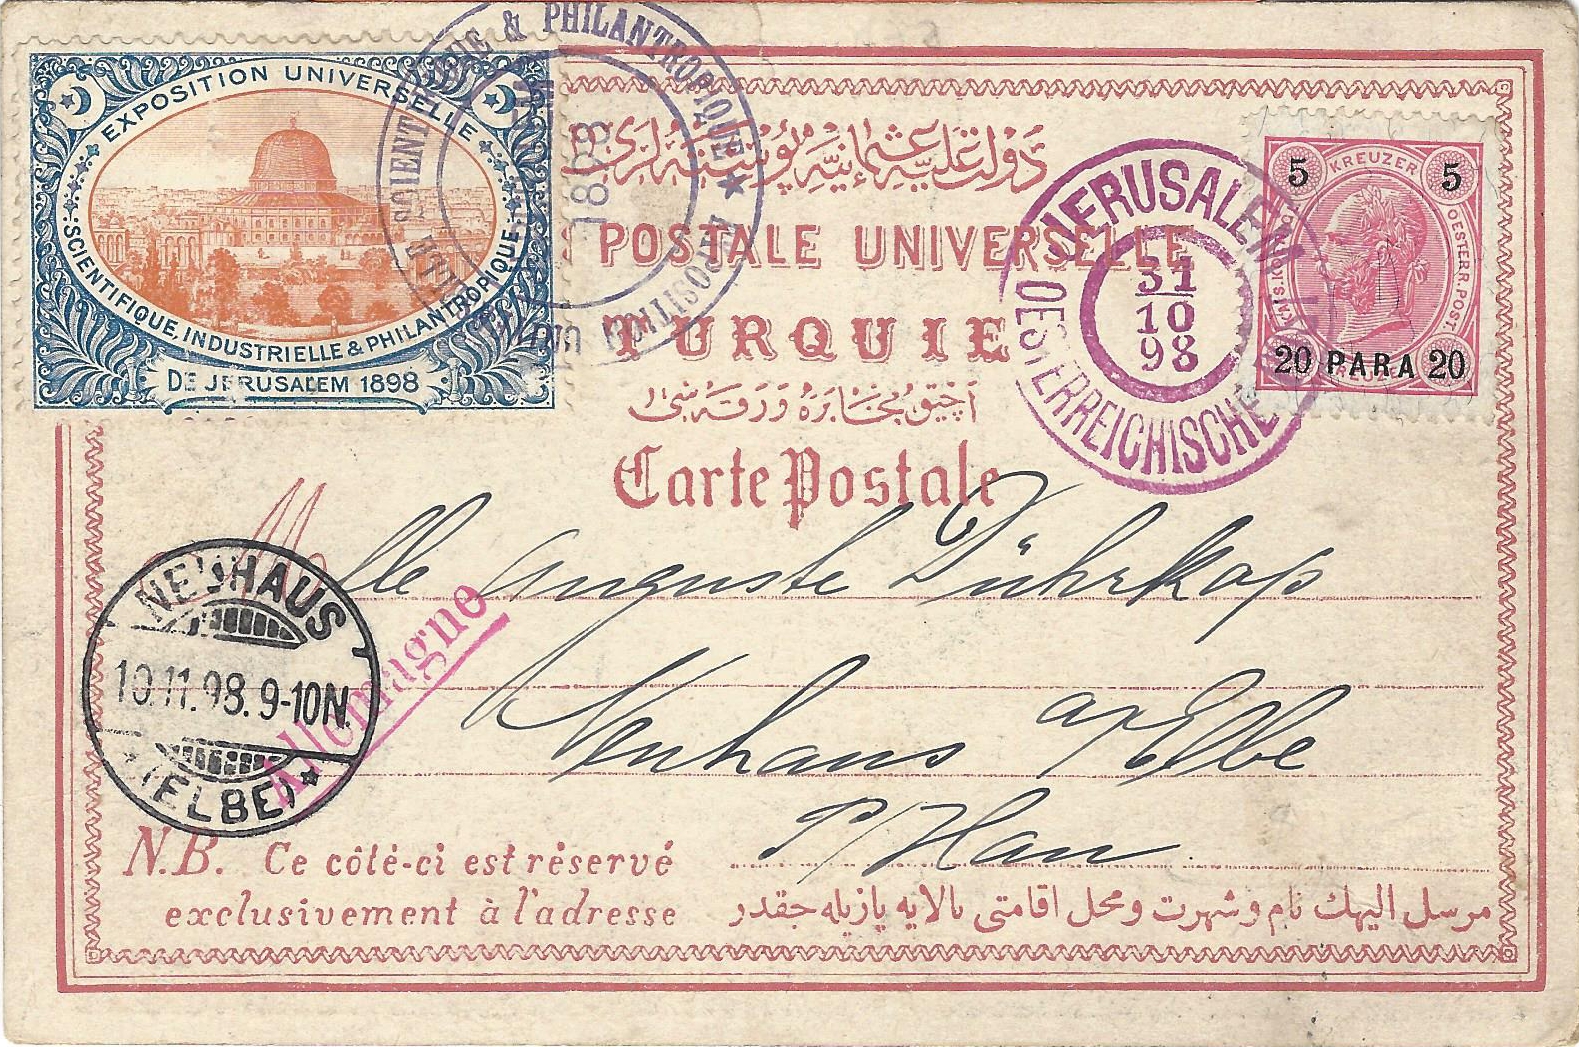 EXPOSITION UNIVERSELLE
SCIENTIFIQUE, INDUSTRIELLE & PHILANTROPIQUE
DE JERUSALEM 1898
SCIENTIFIQUE & PHILANTROPIQUE ★
1898
دولت علیهٔ عثمانیه پوسته لری
POSTALE UNIVERSELLE
TURQUIE
آچیق مخابره ورقه سی
Carte Postale
JERUSALEM
31
10
98
OESTERREICHISCHE
5 KREUZER 5
OESTERR. POST
20 PARA 20
KREUZER
Mlle Auguste Dührkop
Neuhaus a/Elbe
P/Han
Allemagne
NEUHAUS
10.11.98.9-10N.
(ELBE) *
N.B. Ce côté-ci est réservé
exclusivement à l'adresse
مرسل الیهك نام و شهرت و محل اقامتی بالایه یازیله جقدر